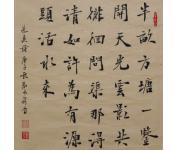 半畝方塘一鑒
開天光雲影共
徘徊問渠那得
清如許為有源
頭活水來
朱熹詩